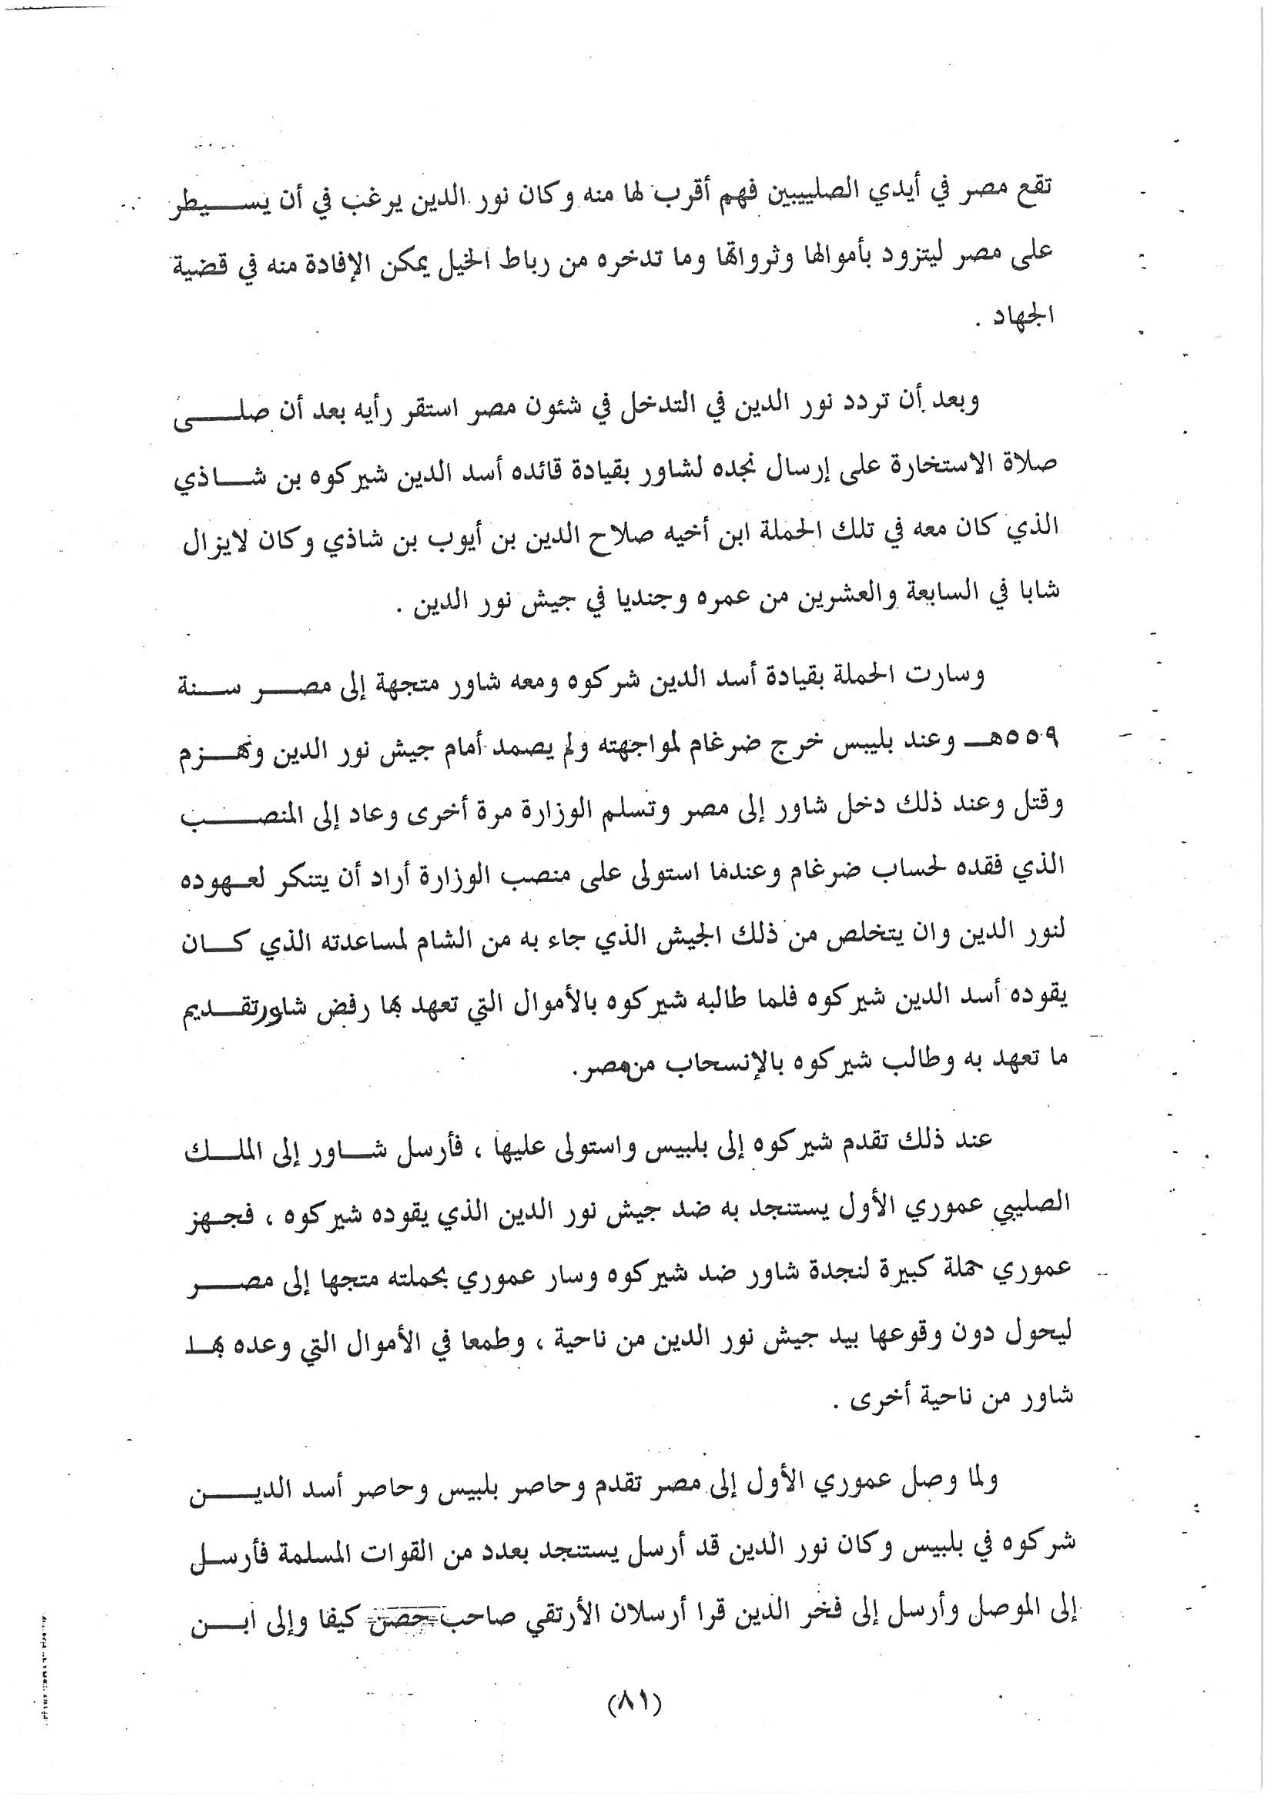 تقع مصر في أيدي الصليبيين فهم أقرب لها منه وكان نور الدين يرغب في أن يسيطر
على مصر ليتزود بأموالها وثرواتها وما تدخره من رباط الخيل يمكن الإفادة منه في قضية
الجهاد .
وبعد أن تردد نور الدين في التدخل في شئون مصر استقر رأيه بعد أن صلى
صلاة الاستخارة على إرسال نجده لشاور بقيادة قائده أسد الدين شيركوه بن شاذي
الذي كان معه في تلك الحملة ابن أخيه صلاح الدين بن أيوب بن شاذي وكان لايزال
شابا في السابعة والعشرين من عمره وجنديا في جيش نور الدين .
وسارت الحملة بقيادة أسد الدين شركوه ومعه شاور متجهة إلى مصر سنة
٥٥٩هـ وعند بليبس خرج ضرغام لمواجهته ولم يصمد أمام جيش نور الدين وهزم
وقتل وعند ذلك دخل شاور إلى مصر وتسلم الوزارة مرة أخرى وعاد إلى المنصب
الذي فقده لحساب ضرغام وعندما استولى على منصب الوزارة أراد أن يتنكر لعهوده
لنور الدين وان يتخلص من ذلك الجيش الذي جاء به من الشام لمساعدته الذي كان
يقوده أسد الدين شيركوه فلما طالبه شيركوه بالأموال التي تعهد بها رفض شاورتقديم
ما تعهد به وطالب شيركوه بالإنسحاب من مصر.
عند ذلك تقدم شيركوه إلى بلبيس واستولى عليها ، فأرسل شاور إلى الملك
الصليبي عموري الأول يستنجد به ضد جيش نور الدين الذي يقوده شيركوه ، فجهز
عموري حملة كبيرة لنجدة شاور ضد شيركوه وسار عموري بحملته متجها إلى مصر
ليحول دون وقوعها بيد جيش نور الدين من ناحية ، وطمعا في الأموال التي وعده بها
شاور من ناحية أخرى .
ولما وصل عموري الأول إلى مصر تقدم وحاصر بلبيس وحاصر أسد الدين
شركوه في بلبيس وكان نور الدين قد أرسل يستنجد بعدد من القوات المسلمة فأرسل
إلى الموصل وأرسل إلى فخر الدين قرا أرسلان الأرتقي صاحب حصن كيفا وإلى ابن
(٨١)